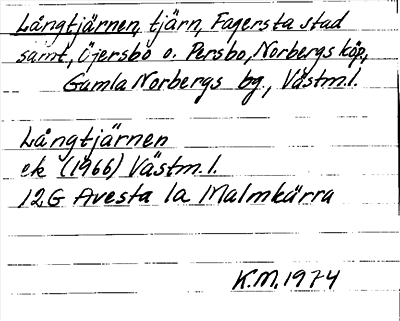 Långtjärnen, tjärn, Fagersta stad
samt, Öjersbo o. Persbo, Norbergs köp,
Gamla Norbergs bg., Västm.l.
Långtjärnen
ek (1966) Västm.l.
12G Avesta 1a Malmkärra
K.M. 1974